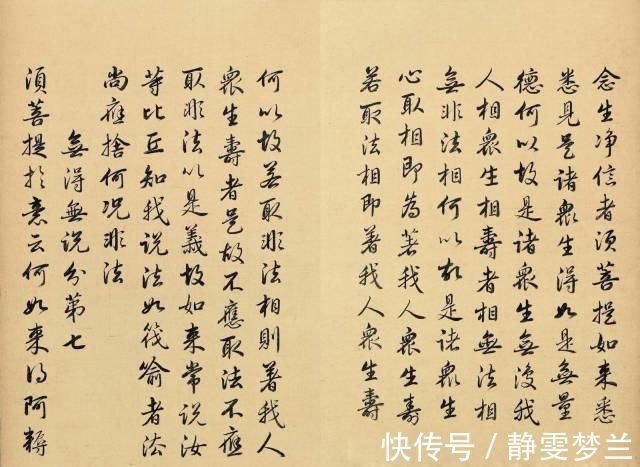 念生净信者須菩提如来悉
悉見是諸衆生得如是無量
德何以故是諸衆生無復我
人相衆生相壽者相無法相
無非法相何以故是諸衆生
心取相即為著我人衆生壽
若取法相即著我人衆生壽
何以故若取非法相則著我人
衆生壽者是故不應取法不應
取非法以是義故如来常說汝
等比丘知我說法如筏喻者法
尚應捨何況非法
無得無說分第七
須菩提於意云何如来得阿耨
快传号／静雯梦兰